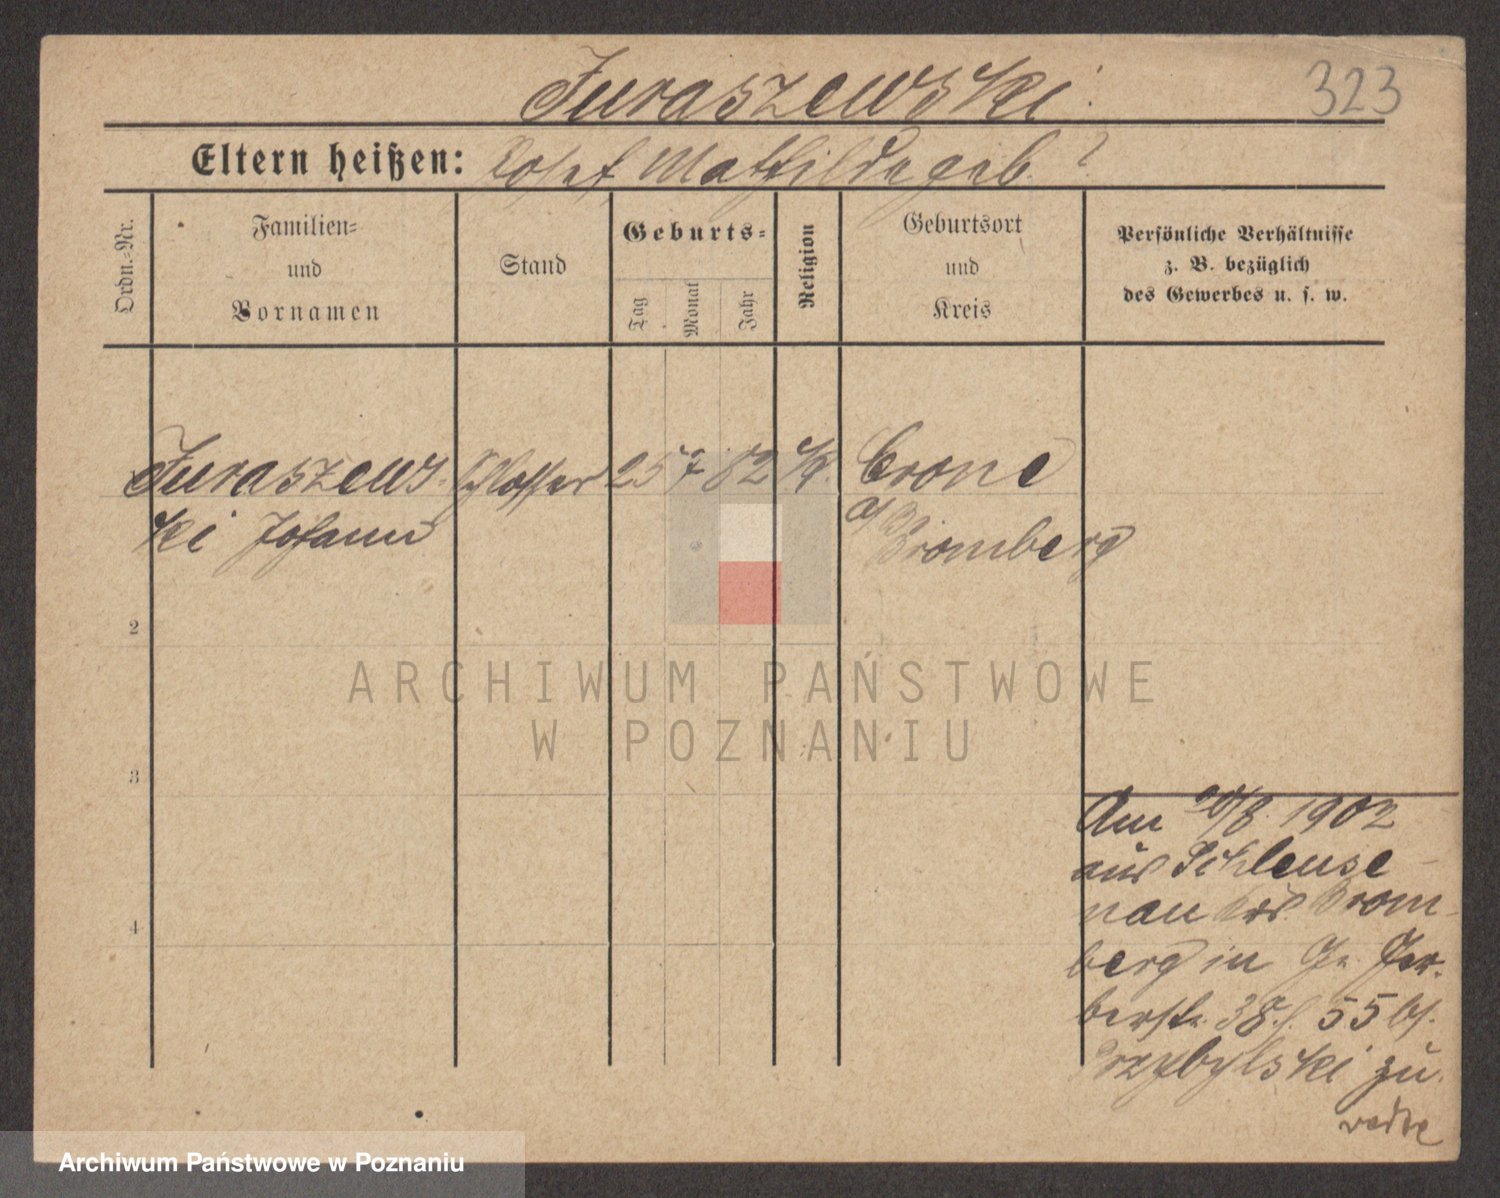 Juraszewski.
323
Eltern heißen: Josef Mathilde geb. ?
Ordn.-Nr.
Familien-
und
Vornamen
Stand
Geburts-
Tag
Monat
Jahr
Religion
Geburtsort
und
Kreis
Persönliche Verhältnisse
z. B. bezüglich
des Gewerbes u. s. w.
Juraszews- Schlosser 25 7 82 k. Crone
ki Johann a/ Bromberg
2
3
4
ARCHIWUM PAŃSTWOWE
W POZNANIU
Am 20/8. 1902
aus Schleuse-
nau Krs. Brom-
berg in Gr. Ger-
berstr. 38. 55 bei
Przybylski zu.
Archiwum Państwowe w Poznaniu